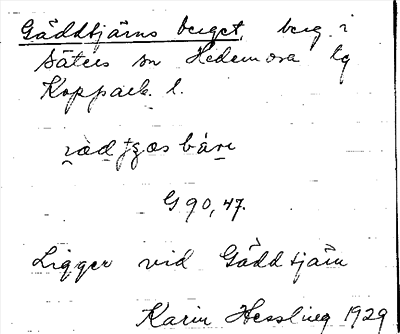 Gäddtjärns berget, berg i
Säters sn Hedemora tg
Kopparb. l.
G 90,47.
Ligger vid Gäddtjärn
Karin Hessling 1929